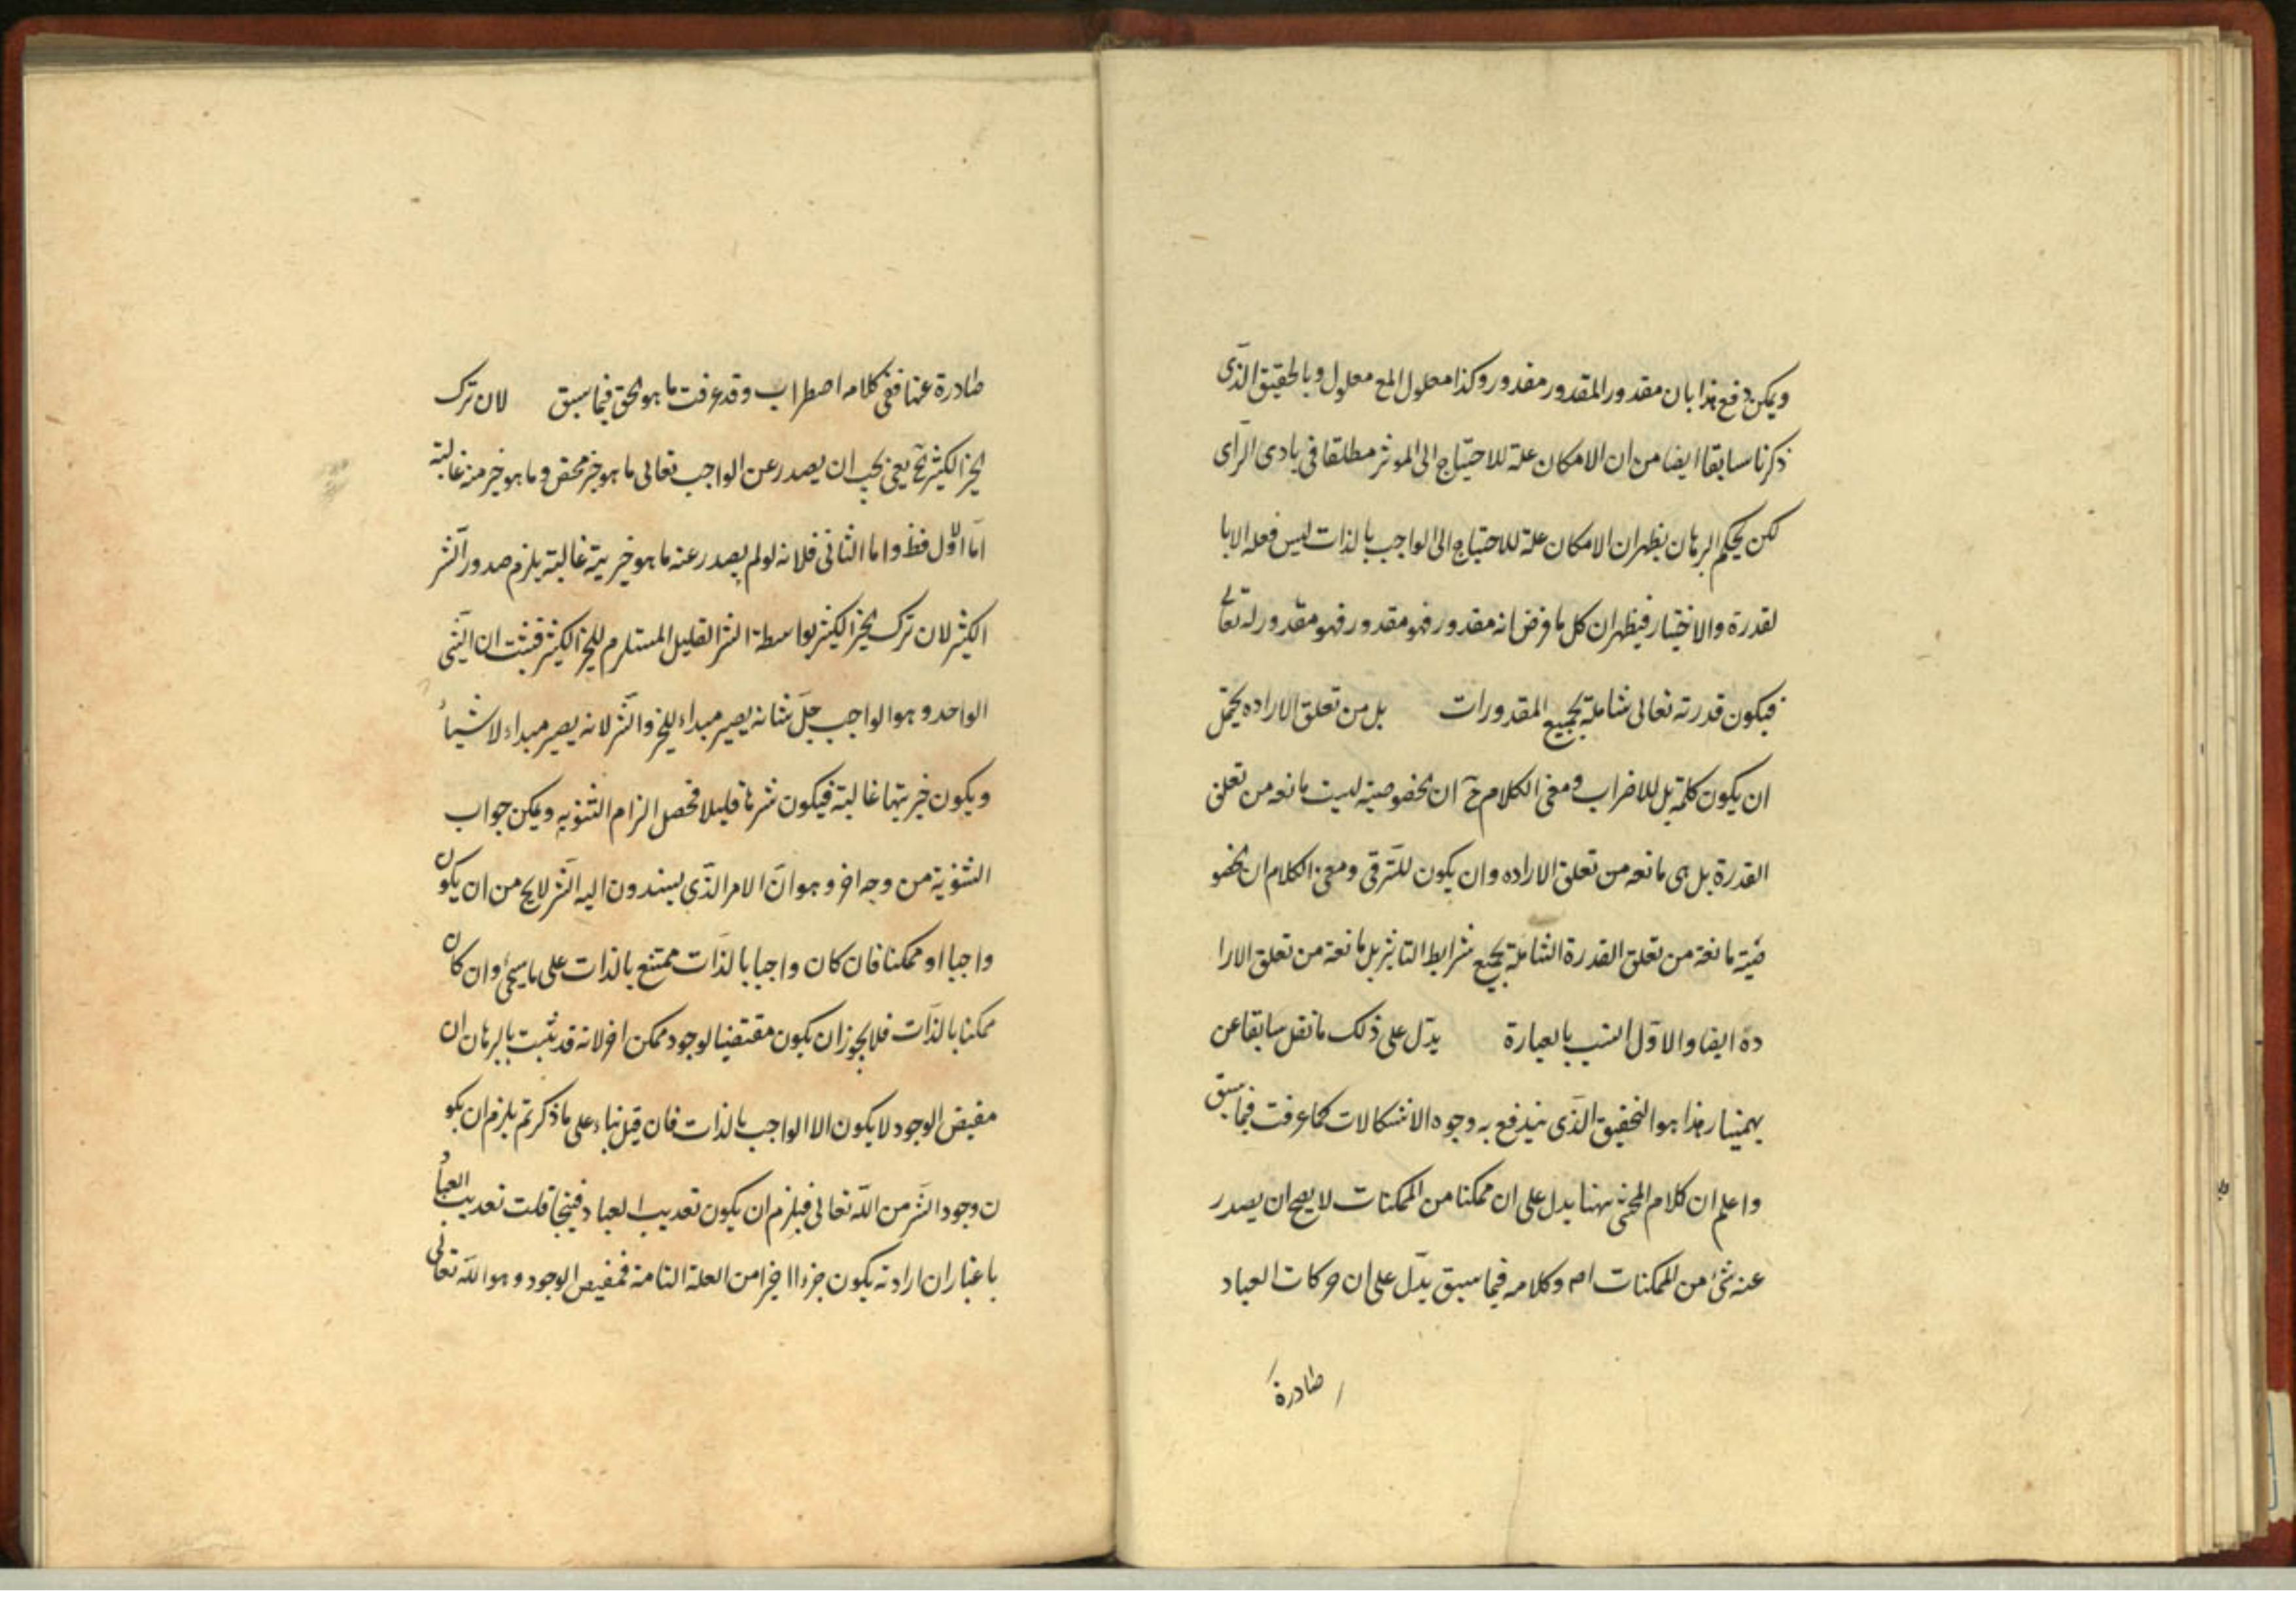 ويمكن دفع هذا بان مقدور المقدور مقدور وكذا معلول المع معلول وبالحقيق الذى
ذكرنا سابقا ايضا من ان الامكان علة للاحتياج الى الموثر مطلقا فى بادى الرأى
لكن بحكم البرهان يظهر ان الامكان علة للاحتياج الى الواجب بالذات ليس فعله الا با
لقدرة والاختيار فيظهر ان كل ما فرض انه مقدور فهو مقدور فهو مقدور له تعالى
فيكون قدرته تعالى شاملة لجميع المقدورات بل من تعلق الاراده يحتمل
ان يكون كلمة بل للاضراب ومعنى الكلام ح ان الخصوصية ليست مانعه من تعلق
القدرة بل هى مانعه من تعلق الاراده وان يكون للترقى ومعنى الكلام ان الخصو
صية مانعة من تعلق القدرة الشاملة لجميع شرايط التاثير بل مانعة من تعلق الارا
دة ايضا والاول انسب بالعبارة يدل على ذلك ما نقل سابقا عن
بهمنيار هذا هو التحقيق الذى يندفع به وجوه الاشكالات كما عرفت فيما سبق
واعلم ان كلام المحشى ههنا يدل على ان ممكنا من الممكنات لا يصح ان يصدر
عنه شئ من الممكنات اه وكلامه فيما سبق يدل على ان حركات العباد
صادرة
صادرة عنها ففى كلامه اضطراب وقد عرفت ما هو الحق فيما سبق لان ترك
الخير الكثير الخ يعنى يجب ان يصدر عن الواجب تعالى ما هو خير محض وما هو خيرمنه غالبة
اما الاول فظ واما الثانى فلانه لو لم يصدر عنه ما هو خيريته غالبة يلزم صدور الشر
الكثير لان ترك الخير الكثير بواسطة الشر القليل المستلزم للخير الكثير فثبت ان الشئ
الواحد و هو الواجب جل شانه يصير مبداء للخير والشر لانه يصير مبداء لاشياء
ويكون خيريتها غالبة فيكون شرها قليلا فحصل الزام الثنويه ويمكن جواب
الثنوية من وجه اخر و هو ان الامر الذى يسندون اليه الشر لا يخ من ان يكون
واجبا او ممكنا فان كان واجبا بالذات ممتنع بالذات على ما سيجئ وان كان
ممكنا بالذات فلا يجوز ان يكون مقتضيا لوجود ممكن اخر لانه قد ثبت بالبرهان ان
مفيض الوجود لا يكون الا الواجب بالذات فان قيل بناء على ما ذكرتم يلزم ان يكو
ن وجود الشر من الله تعالى فيلزم ان يكون تعذيب العباد قبيحا قلت تعذيب العباد
باعتبار ان ارادته يكون جزءا اخيرا من العلة التامة فمفيض الوجود و هو الله تعالى